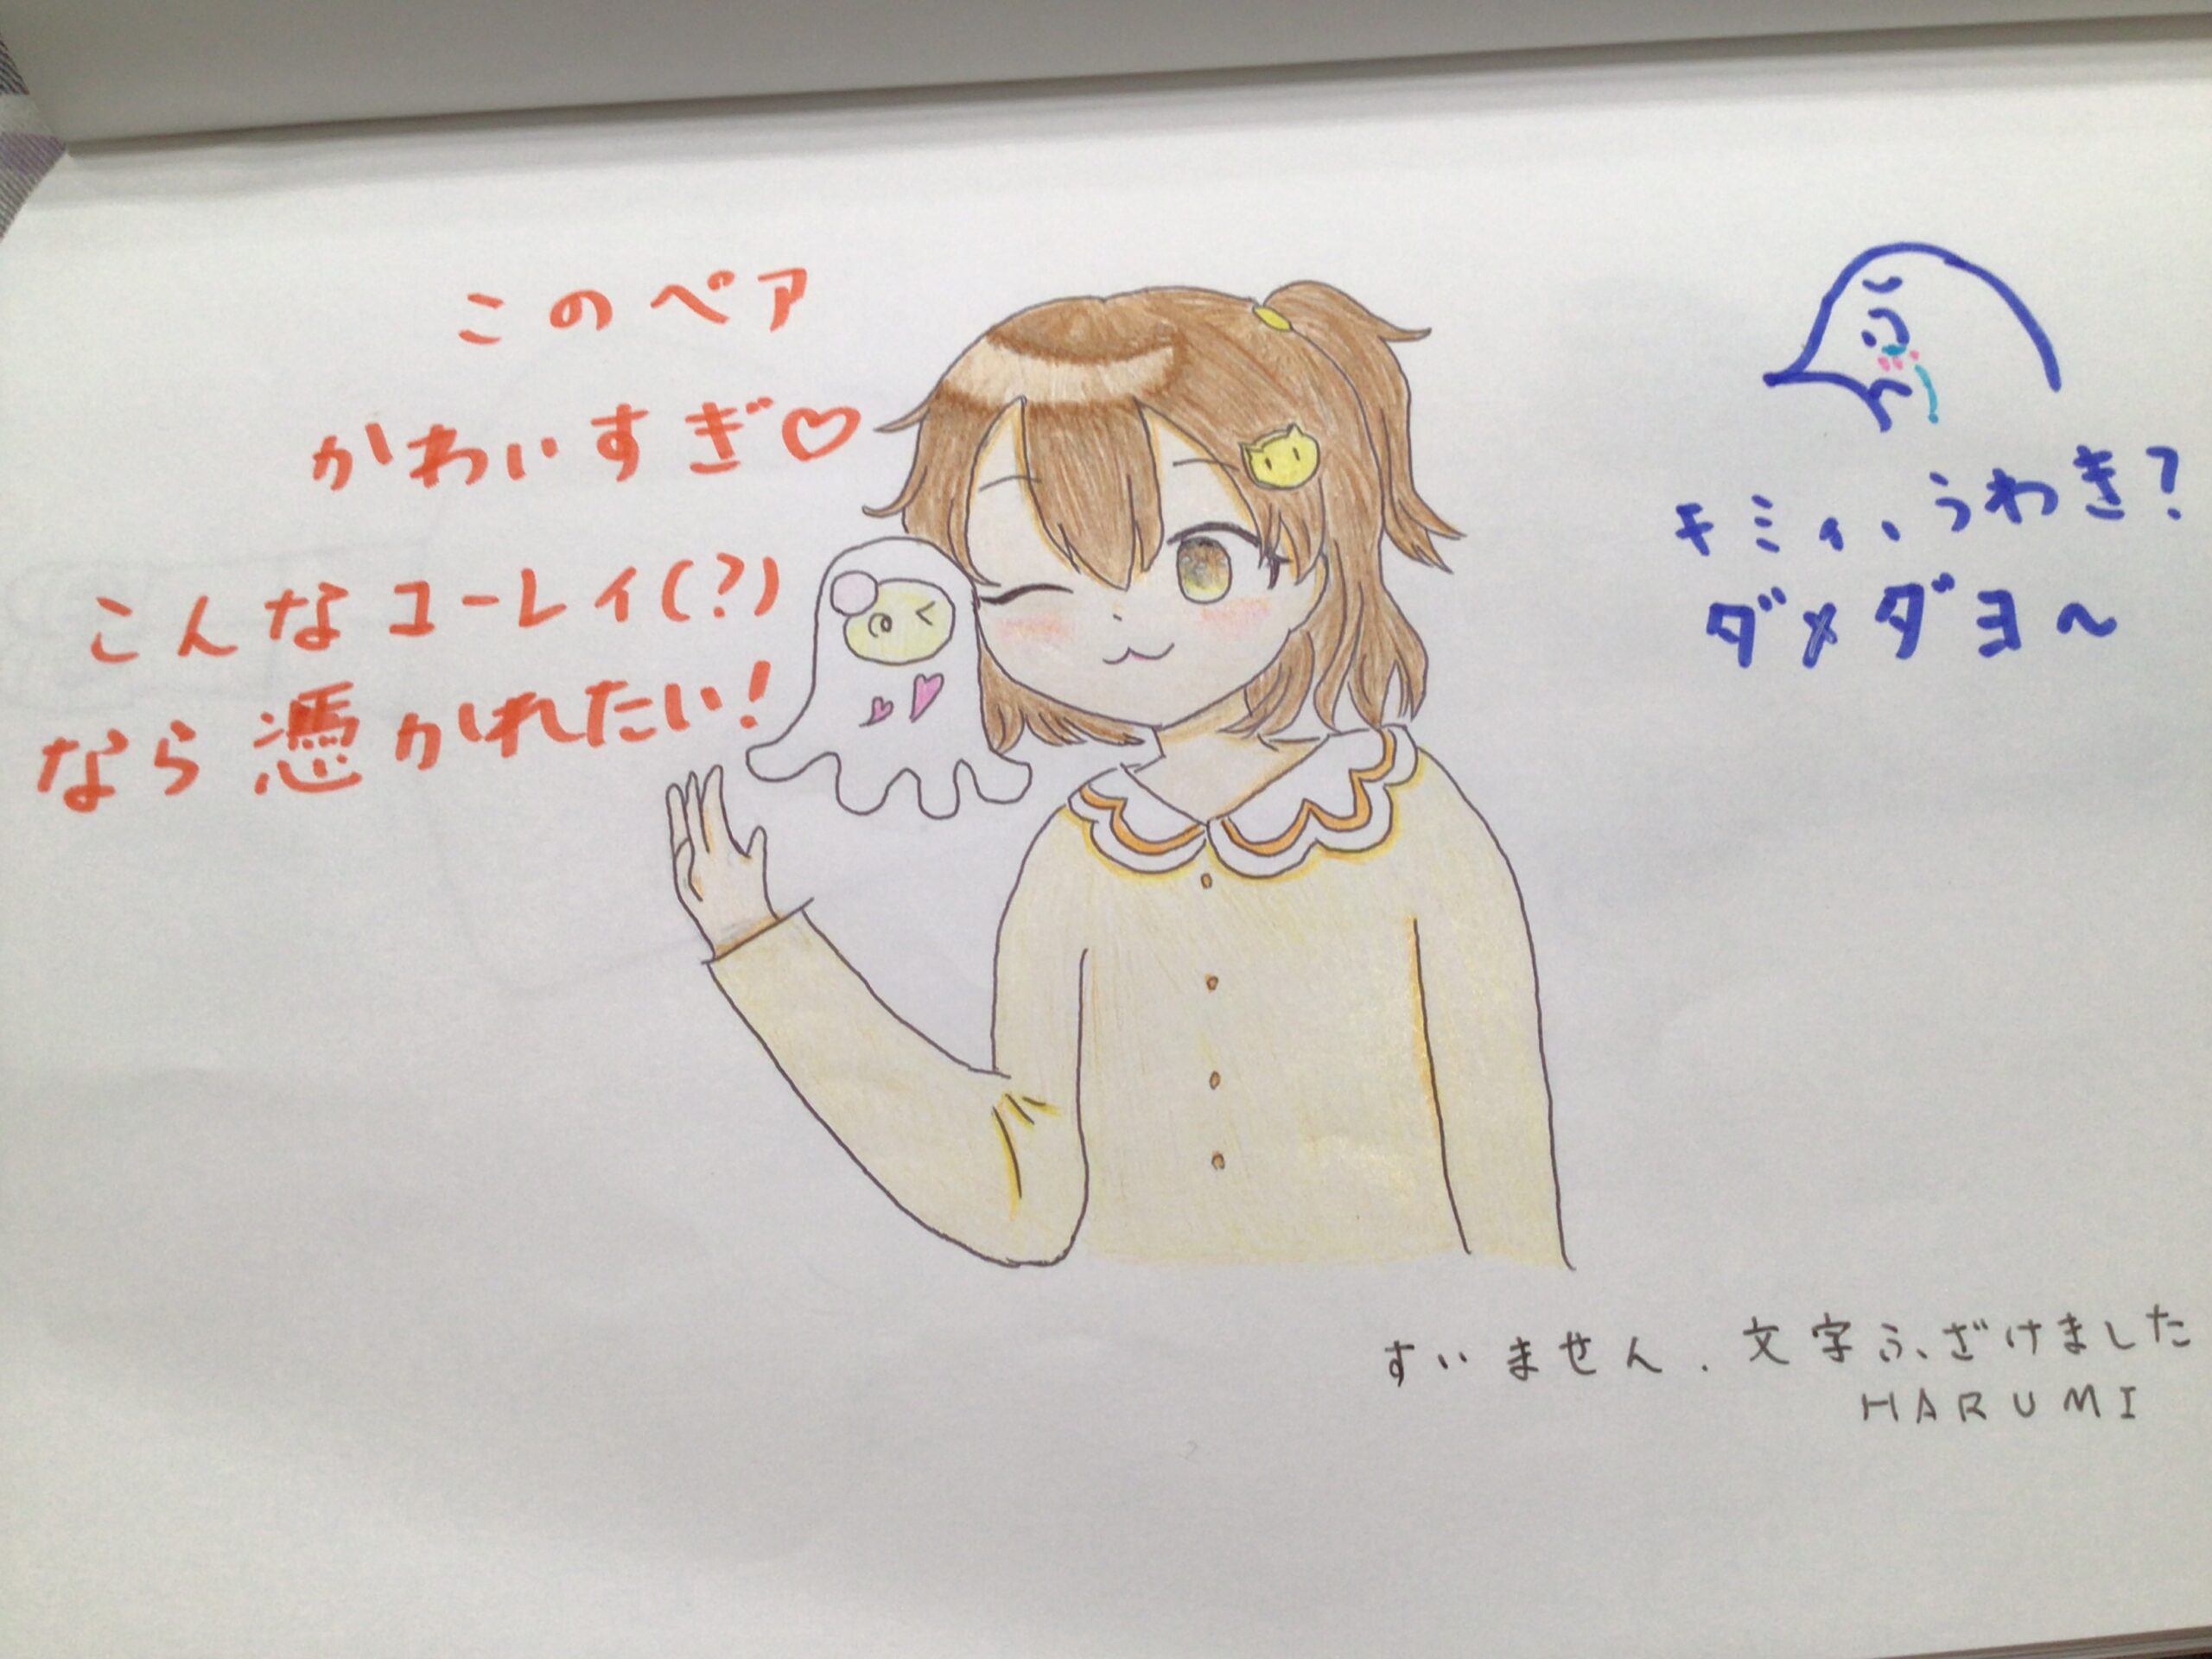 このペア
かわいすぎ♡
こんなユーレイ(?)
なら憑かれたい!
キミィ、うわき?
ダメダヨ~
すいません、文字ふざけました
HARUMI